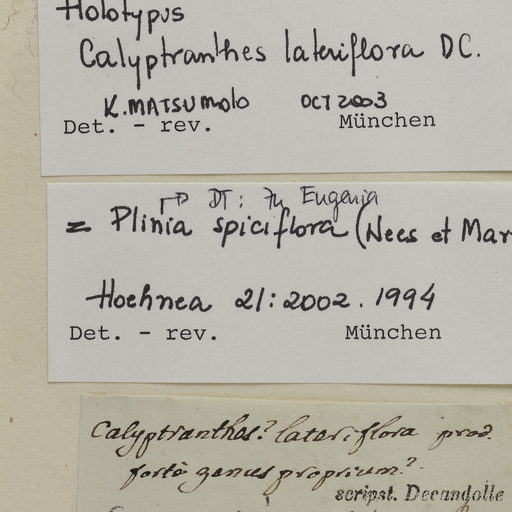 Holotypus
Calyptranthes lateriflora DC.
K. MATSUMOTO OCT 2003
Det. - rev. München
DT: in Eugenia
= Plinia spiciflora (Nees et Mar
Hoehnea 21: 2002. 1994
Det. - rev. München
Calyptranthes? lateriflora prod.
forte genus proprium?
scripst. Decandolle